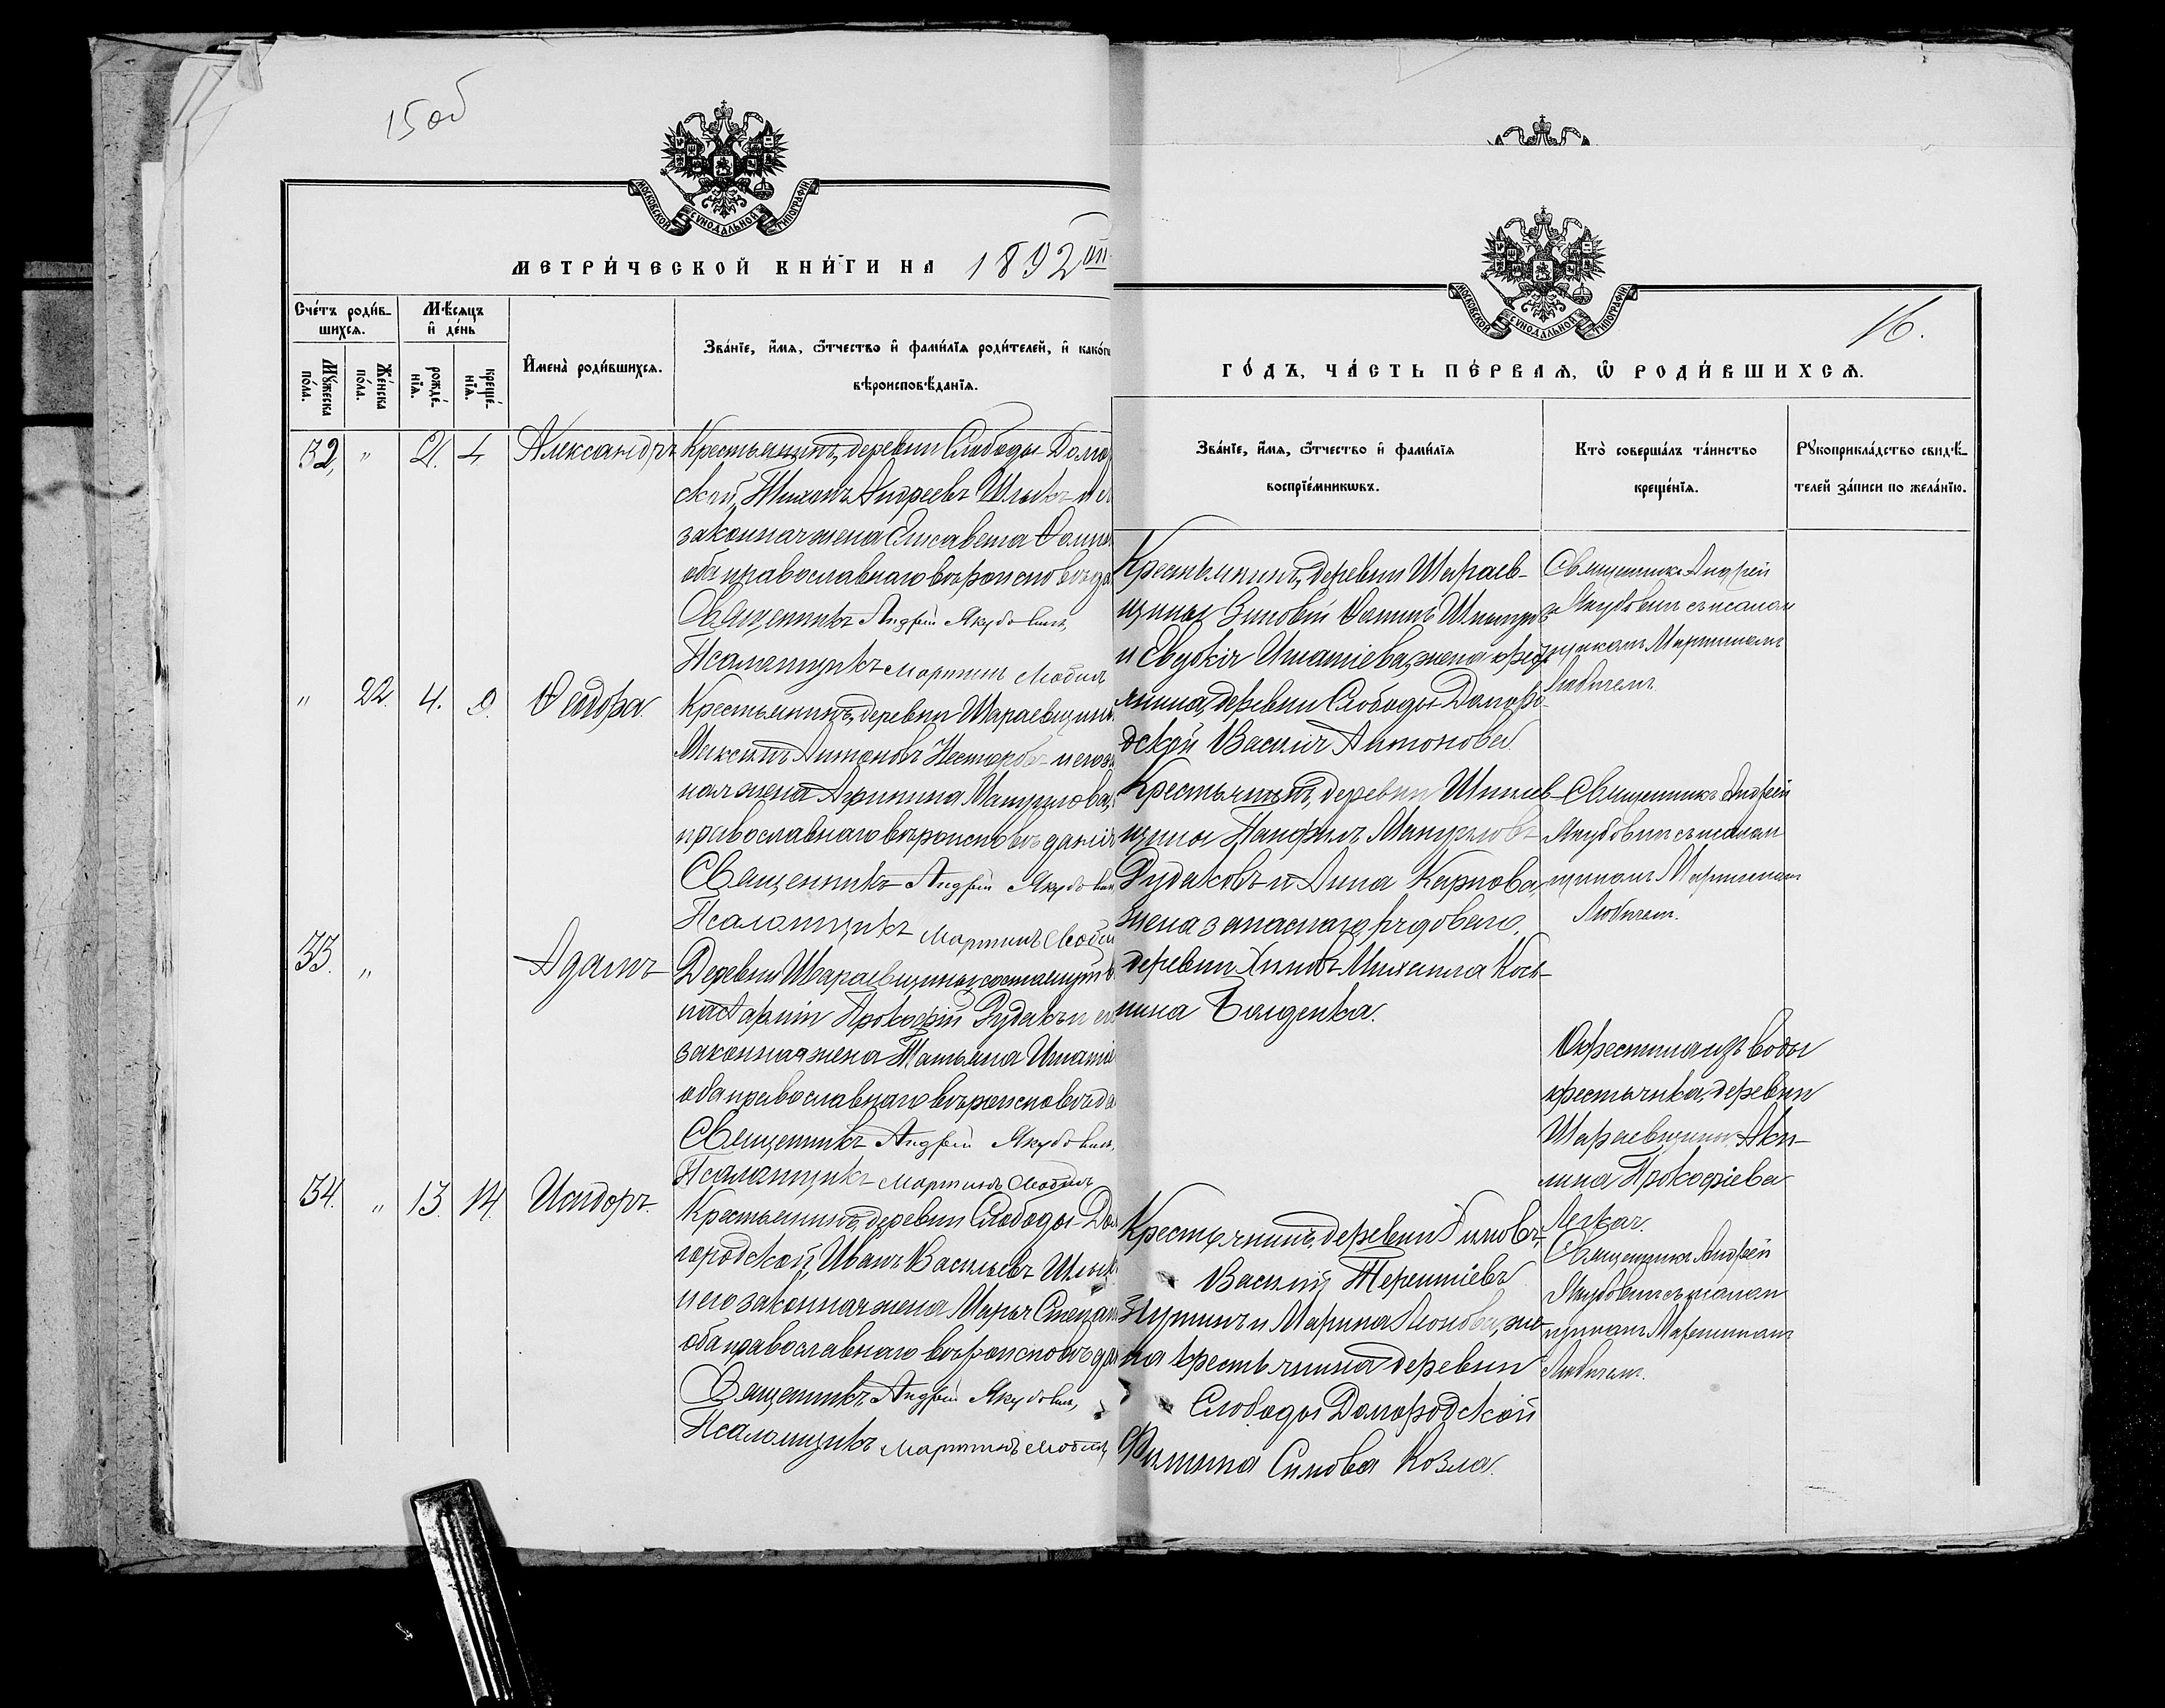 15 об
МОСКОВСКОЙ СУНОДАЛЬНОЙ ТИПОГРАФІИ
МЕТРИ́ЧЕСКОЙ КНИ́ГИ НА 1892 ой
Сче́тъ роди́в-
шихсѧ.
Мѣ́сѧцъ
и҆ де́нь
И҆мена̀ роди́вшихсѧ.
Зва́нїе, и҆́мѧ, ѻ҆́тчество и҆ фами́лїѧ роди́телей, и҆ како́гѡ
вѣроисповѣ́данїѧ.
Мꙋ́жеска
по́ла.
Же́нска
по́ла.
рожде́-
нїѧ.
креще́-
нїѧ.
32, " 2. 4. Александръ Крестьянинъ, деревни Слободы Домо
ской, Тихонъ Андреевъ Шлыкъ и ег
законная жена Елисавета Ѳомин
оба православнаго вѣроисповѣда
Священникъ Андрей Якубовичъ,
Псаломщикъ Мартинъ Любич
" 22. 4. Ѳеодора. Крестьянинъ, деревни Шараевщины
Максимъ Антоновъ Нестеров и его зак
ная жена Агрипина Мануилова,
православнаго вѣроисповѣданія
Священникъ Андрей Якубович
Псаломщикъ Мартинъ Любич
33. " Адамъ Деревни Шараевщины, состоящій в
на Арміи Прокофій Рудакъ и ег
законная жена Татьяна Игнатіе
оба православнаго вѣроисповѣда
Священникъ Андрей Якубовичъ,
Псаломщикъ Мартинъ Любичъ
34. " 13. 14. Исидоръ. Крестьянинъ, деревни Слободы До
городской, Иванъ Васильевъ Шлык
и его законная жена Марья Степан
оба православнаго вѣроисповѣдан
Священникъ Андрей Якубовичъ,
Псаломщикъ Мартинъ Любич
МОСКОВСКОЙ СУНОДАЛЬНОЙ ТИПОГРАФІИ
16.
ГО́ДЪ, ЧА́СТЬ ПЕ́РВАѦ, Ѽ РОДИ́ВШИХСѦ.
Зва́нїе, и҆́мѧ, ѻ҆́тчество и҆ фами́лїѧ
воспрїе́мникѡвъ.
Кто̀ соверша́лъ та́инство
креще́нїѧ.
Рꙋкоприкла́дство свидѣ́-
телей за́писи по жела́нїю.
Крестьянинъ, деревни Шараев-
щины Зиновій Ѳоминъ
и Евдокія Игнатіева, жена крес
янина, деревни Слободы Доморо
дской Василія Антонова
Священникъ Андрей
Якубовичъ съ псалом
щикомъ Мартиномъ
Любичемъ.
Крестьянинъ, деревни
щины Панфилъ Мануилов
Рудаковъ и Анна Карпова,
жена запаснаго рядоваго,
деревни Хиновъ Михаила Кось-
мина
Священникъ Андрей
Якубовичъ съ псалом
щикомъ Мартиномъ
Любичем.
Окрестила изъ воды
крестьянка, деревни
Шараевщины Аки-
лина Прокофіева
Крестьянинъ, деревни Хиновъ,
Василій Терентіевъ
и Марина Леонова, же-
на крестьянина деревни
Слободы Домородской
Филиппа Симова Козла.
Священникъ Андрей
Якубовичъ съ псалом
щикомъ Мартиномъ
Любичем.